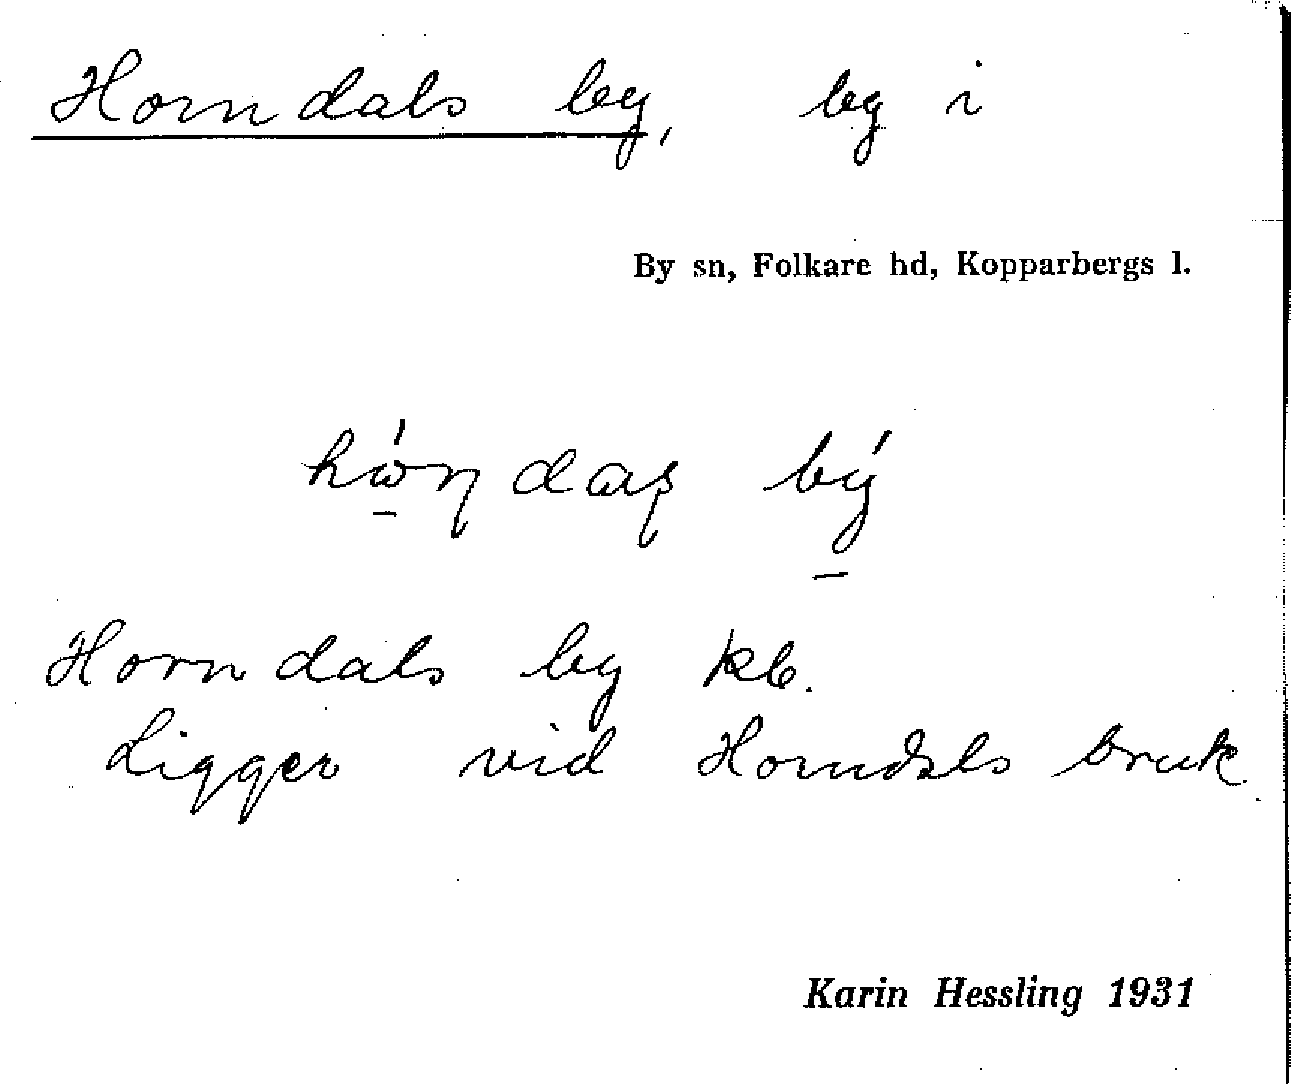 Horndals by, by i
By sn, Folkare hd, Kopparbergs l.
bý
Horndals by kb.
Ligger vid Horndals bruk.
Karin Hessling 1931